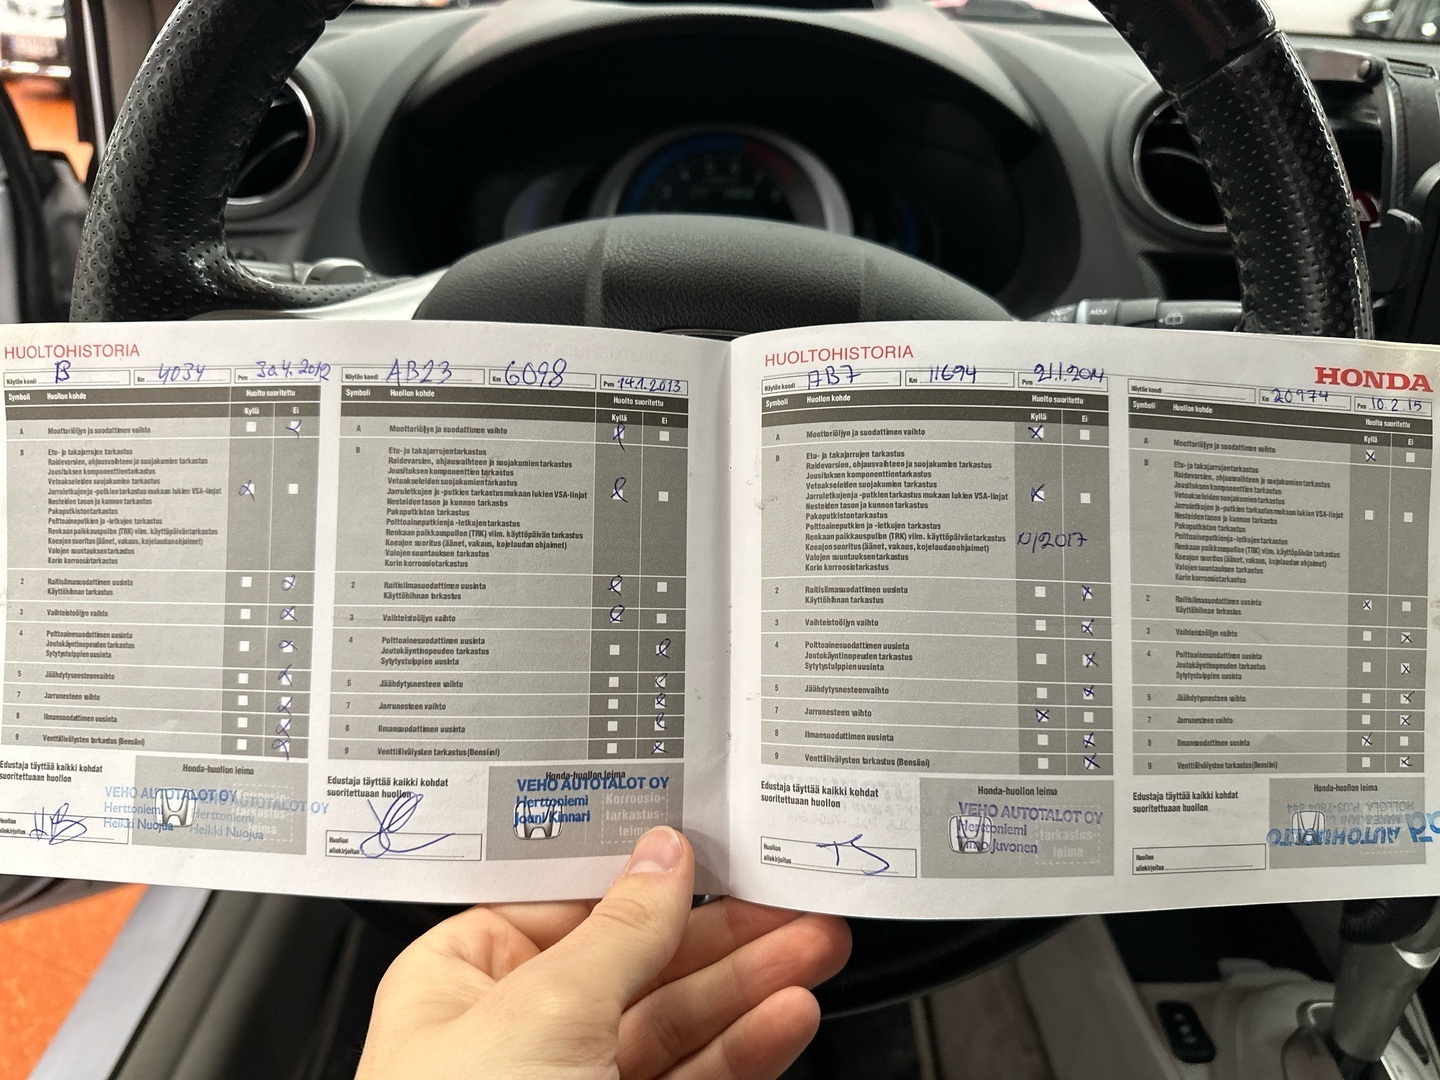 HUOLTOHISTORIA
Näytön koodi B Km 4034 Pvm 30.4.2012
Symboli Huollon kohde Huolto suoritettu
Kyllä Ei
A Moottoriöljyn ja suodattimen vaihto
B Etu- ja takajarrujen tarkastus
Raidevarsien, ohjausvaihteen ja suojakumien tarkastus
Jousituksen komponenttien tarkastus
Vetoakseleiden suojakumien tarkastus
Jarruletkujen ja -putkien tarkastus mukaan lukien VSA-linjat
Nesteiden tason ja kunnon tarkastus
Pakoputkiston tarkastus
Polttoaineputkien ja -letkujen tarkastus
Renkaan paikkauspullon (TRK) viim. käyttöpäivän tarkastus
Koeajon suoritus (äänet, vakaus, kojelaudan ohjaimet)
Valojen suuntauksen tarkastus
Korin korroosiotarkastus
2 Raitisilmasuodattimen uusinta
Käyttöhihnan tarkastus
3 Vaihteistoöljyn vaihto
4 Polttoainesuodattimen uusinta
Joutokäyntinopeuden tarkastus
Sytytystulppien uusinta
5 Jäähdytysnesteen vaihto
7 Jarrunesteen vaihto
8 Ilmansuodattimen uusinta
9 Venttiilivälysten tarkastus (Bensiini)
Edustaja täyttää kaikki kohdat
suoritettuaan huollon
Honda-huollon leima
VEHO AUTOTALOT OY
Herttoniemi
Heikki Nuojua
AUTOTALOT OY
Herttoniemi
Heikki Nuojua
Huollon
allekirjoitus
Näytön koodi AB23 Km 6098 Pvm 14.1.2013
Symboli Huollon kohde Huolto suoritettu
Kyllä Ei
A Moottoriöljyn ja suodattimen vaihto
B Etu- ja takajarrujen tarkastus
Raidevarsien, ohjausvaihteen ja suojakumien tarkastus
Jousituksen komponenttien tarkastus
Vetoakseleiden suojakumien tarkastus
Jarruletkujen ja -putkien tarkastus mukaan lukien VSA-linjat
Nesteiden tason ja kunnon tarkastus
Pakoputkiston tarkastus
Polttoaineputkien ja -letkujen tarkastus
Renkaan paikkauspullon (TRK) viim. käyttöpäivän tarkastus
Koeajon suoritus (äänet, vakaus, kojelaudan ohjaimet)
Valojen suuntauksen tarkastus
Korin korroosiotarkastus
2 Raitisilmasuodattimen uusinta
Käyttöhihnan tarkastus
3 Vaihteistoöljyn vaihto
4 Polttoainesuodattimen uusinta
Joutokäyntinopeuden tarkastus
Sytytystulppien uusinta
5 Jäähdytysnesteen vaihto
7 Jarrunesteen vaihto
8 Ilmansuodattimen uusinta
9 Venttiilivälysten tarkastus (Bensiini)
Edustaja täyttää kaikki kohdat
suoritettuaan huollon
Honda-huollon leima
VEHO AUTOTALOT OY
Herttoniemi
Jouni Kinnari
Korroosio-
tarkastus-
leima
Huollon
allekirjoitus
HUOLTOHISTORIA
Näytön koodi AB7 Km 11694 Pvm 21.1.2014
Symboli Huollon kohde Huolto suoritettu
Kyllä Ei
A Moottoriöljyn ja suodattimen vaihto
B Etu- ja takajarrujen tarkastus
Raidevarsien, ohjausvaihteen ja suojakumien tarkastus
Jousituksen komponenttien tarkastus
Vetoakseleiden suojakumien tarkastus
Jarruletkujen ja -putkien tarkastus mukaan lukien VSA-linjat
Nesteiden tason ja kunnon tarkastus
Pakoputkiston tarkastus
Polttoaineputkien ja -letkujen tarkastus
Renkaan paikkauspullon (TRK) viim. käyttöpäivän tarkastus
Koeajon suoritus (äänet, vakaus, kojelaudan ohjaimet)
Valojen suuntauksen tarkastus
Korin korroosiotarkastus
2 Raitisilmasuodattimen uusinta
Käyttöhihnan tarkastus
3 Vaihteistoöljyn vaihto
4 Polttoainesuodattimen uusinta
Joutokäyntinopeuden tarkastus
Sytytystulppien uusinta
5 Jäähdytysnesteen vaihto
7 Jarrunesteen vaihto
8 Ilmansuodattimen uusinta
9 Venttiilivälysten tarkastus (Bensiini)
Edustaja täyttää kaikki kohdat
suoritettuaan huollon
Honda-huollon leima
VEHO AUTOTALOT OY
Herttoniemi
Juvonen
tarkastus-
leima
Huollon
allekirjoitus TJ
HONDA
Näytön koodi Km 20974 Pvm 10.2.15
Symboli Huollon kohde Huolto suoritettu
Kyllä Ei
A Moottoriöljyn ja suodattimen vaihto
B Etu- ja takajarrujen tarkastus
Raidevarsien, ohjausvaihteen ja suojakumien tarkastus
Jousituksen komponenttien tarkastus
Vetoakseleiden suojakumien tarkastus
Jarruletkujen ja -putkien tarkastus mukaan lukien VSA-linjat
Nesteiden tason ja kunnon tarkastus
Pakoputkiston tarkastus
Polttoaineputkien ja -letkujen tarkastus
Renkaan paikkauspullon (TRK) viim. käyttöpäivän tarkastus
Koeajon suoritus (äänet, vakaus, kojelaudan ohjaimet)
Valojen suuntauksen tarkastus
Korin korroosiotarkastus
2 Raitisilmasuodattimen uusinta
Käyttöhihnan tarkastus
3 Vaihteistoöljyn vaihto
4 Polttoainesuodattimen uusinta
Joutokäyntinopeuden tarkastus
Sytytystulppien uusinta
5 Jäähdytysnesteen vaihto
7 Jarrunesteen vaihto
8 Ilmansuodattimen uusinta
9 Venttiilivälysten tarkastus (Bensiini)
Edustaja täyttää kaikki kohdat
suoritettuaan huollon
Honda-huollon leima
AUTOHUOLTO
HOLLOLA
Huollon
allekirjoitus